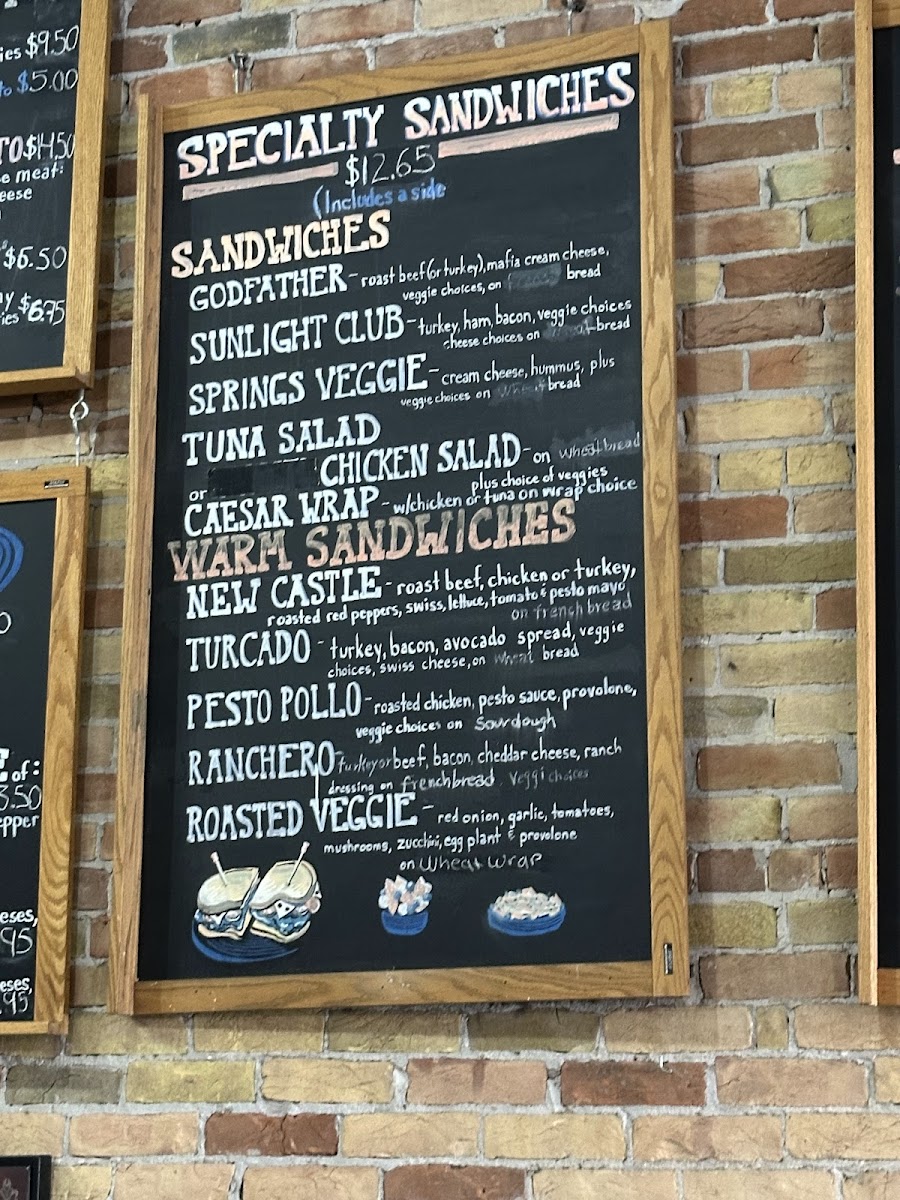 ies $9.50
to $5.00
TO $14.50
e meat:
eese
$6.50
$6.75
ies
SPECIALTY SANDWICHES
$12.65
(Includes a side
SANDWICHES
GODFATHER - roast beef (or turkey), mafia cream cheese,
veggie choices, on french bread
SUNLIGHT CLUB - turkey, ham, bacon, veggie choices
cheese choices on wheat bread
SPRINGS VEGGIE - cream cheese, hummus, plus
veggie choices on wheat bread
TUNA SALAD
or CHICKEN SALAD - on wheat bread
plus choice of veggies
CAESAR WRAP - w/chicken or tuna on wrap choice
WARM SANDWICHES
NEW CASTLE - roast beef, chicken or turkey,
roasted red peppers, swiss, lettuce, tomato & pesto mayo
on french bread
TURCADO - turkey, bacon, avocado spread, veggie
choices, swiss cheese, on wheat bread
PESTO POLLO - roasted chicken, pesto sauce, provolone,
veggie choices on Sourdough
RANCHERO - turkey or beef, bacon, cheddar cheese, ranch
dressing on french bread. Veggi choices
ROASTED VEGGIE - red onion, garlic, tomatoes,
mushrooms, zucchini, egg plant & provolone
on wheat wrap
of:
3.50
epper
eses,
.95
eses,
.95